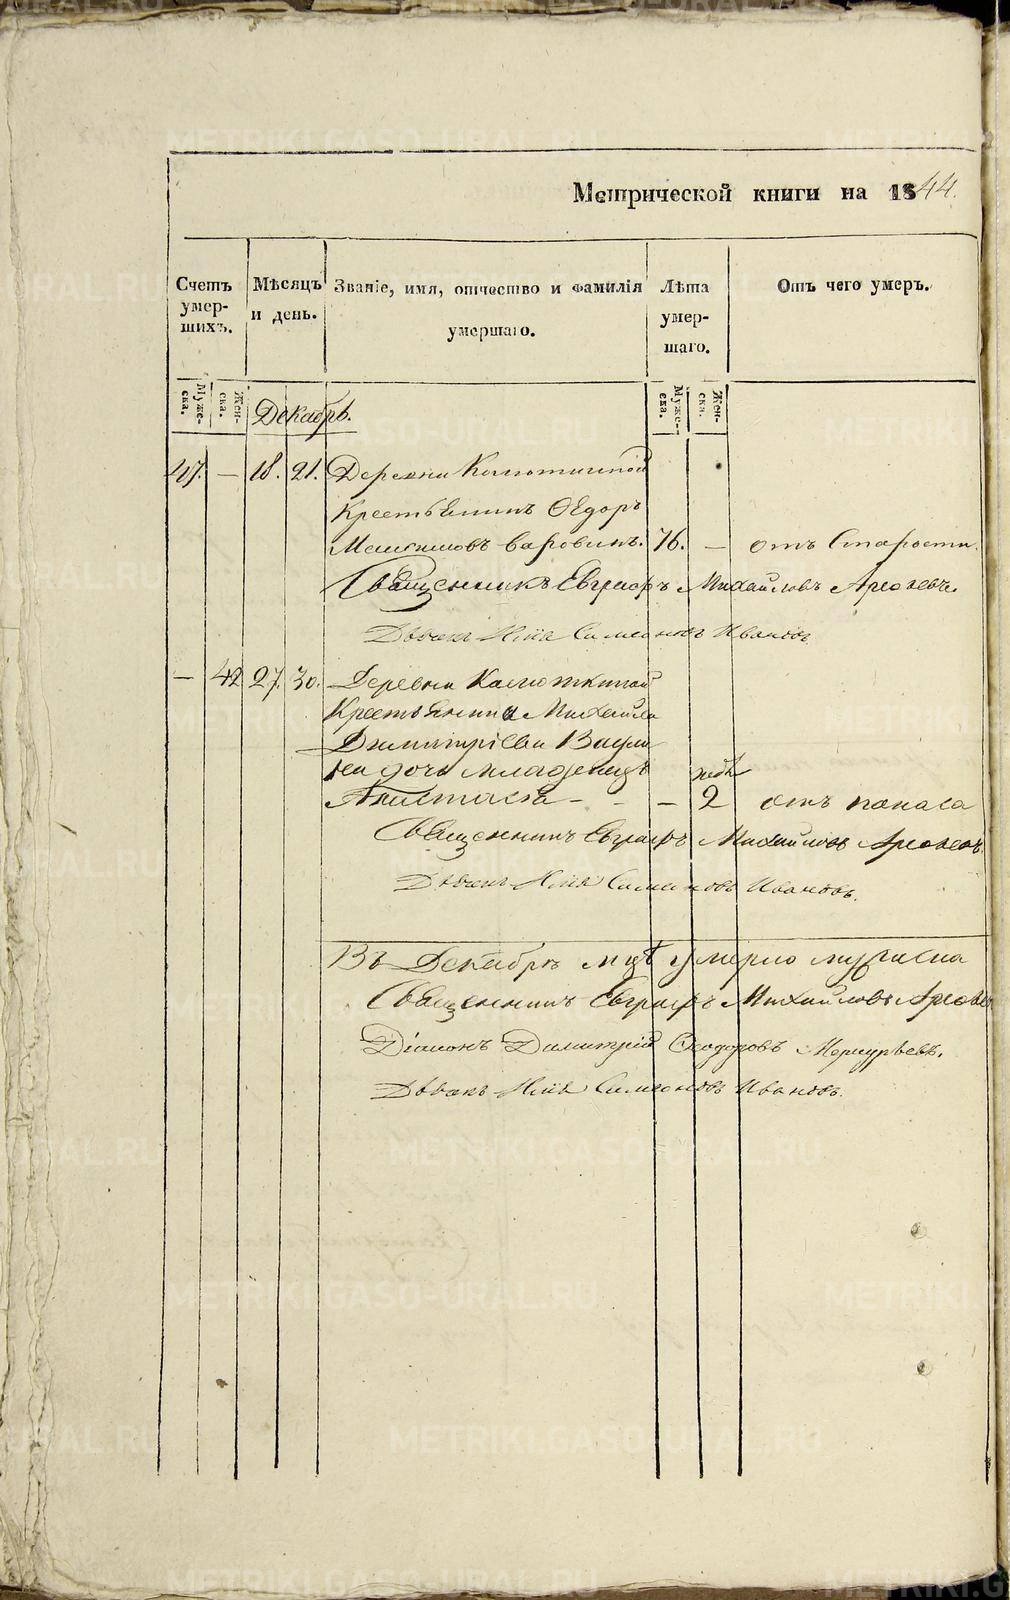 Метрической книги на 1844.
Счетъ умер- шихъ.
Мѣсяцъ и день.
Званіе, имя, отчество и фамилія умершаго.
Лѣта умер- шаго.
Отъ чего умеръ.
Муже- ска.
Жен- ска.
Муже- ска.
Жен- ска.
Декабрь.
47. — 18. 21. Деревни
Крестьянинъ Ѳедоръ
76. — отъ Старости.
Священникъ Евграфъ Михайловъ
Дьячекъ Илія Симеоновъ Ивановъ
— 42 27. 30. Деревни
Крестьянина Михайла
Димитріева Ваули
на дочь младенецъ недѣ
Анастасія - - — 2 отъ поноса
Священникъ Евграфъ Михайловъ
Дьячекъ Илія Симеоновъ Ивановъ.
Въ Декабрѣ мцѣ умерло мужеска
Священникъ Евграфъ Михайловъ
Діаконъ Димитрій Ѳеодоровъ Меркурьевъ.
Дьячекъ Илія Симеоновъ Ивановъ.
METRIKI.GASO-URAL.RU